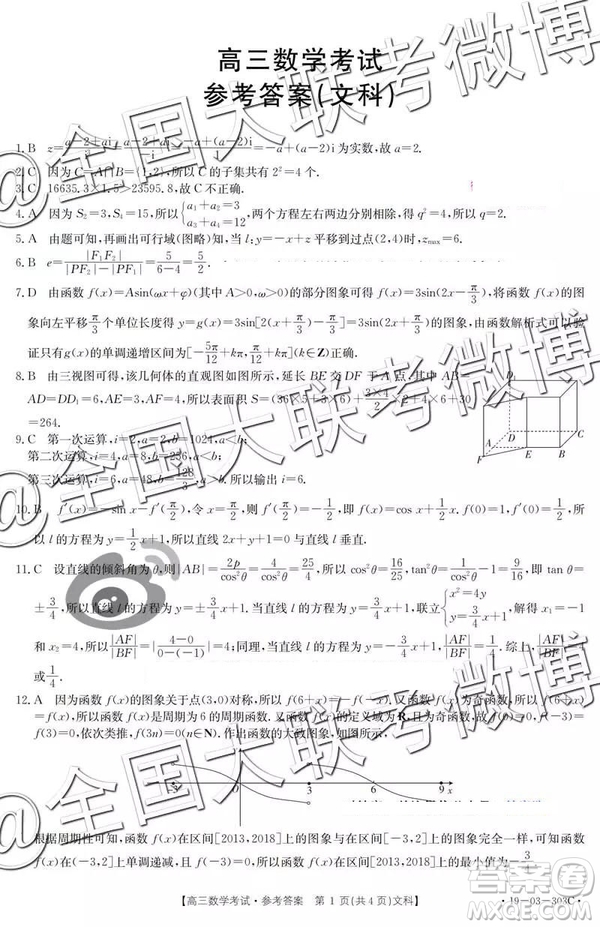 高三数学考试
参考答案(文科)
1. B z=a-2+ai/-i=-a+(a-2)i为实数,故a=2.
2. C 因为C=A∩B={1,2},所以C的子集共有2²=4个.
3. C 16635.3×1.5>23595.8,故C不正确.
4. A 因为S₂=3,S₄=15,所以{a₁+a₂=3 a₃+a₄=12,两个方程左右两边分别相除,得q²=4,所以q=2.
5. A 由题可知,再画出可行域(图略)知,当l:y=-x+z平移到过点(2,4)时,zmax=6.
6. B e=|F₁F₂|/(|PF₂|-|PF₁|)=5/(6-4)=5/2.
7. D 由函数f(x)=Asin(ωx+φ)(其中A>0,ω>0)的部分图象可得f(x)=3sin(2x-π/3),将函数f(x)的图
象向左平移π/3个单位长度得g(x)=3sin[2(x+π/3)-π/3]=3sin(2x+π/3)的图象,由函数解析式可以验
证只有g(x)的单调递增区间为[-5π/12+kπ,π/12+kπ](k∈Z)对.
8. B 由三视图可得,该几何体的直观图如图所示,延长BE交DF于A点,
AD=DD₁=6,AE=3,AF=4,所以表面积S=(36×5+3×6)+3×4/2+4×6+30
=264.
A D E B F C
9. C 第一次运算,i=2,a=2,b=1024,a<b;
第二次运算,i=4,a=8,b=256,a<b;
第三次运算,i=6,a=48,b=128/3,a>b.所以输出i=6.
10. B f′(x)=-sin x-f′(π/2),令x=π/2,则f′(π/2)=-1/2,f(x)=cos x+1/2x.因为f(0)=1,f′(0)=1/2,所
以l的方程为y=1/2x+1,所以直线2x+y+1=0与直线l垂直.
11. C 设直线l的倾斜角为θ,则|AB|=2p/cos²θ=4/cos²θ=25/4,所以cos²θ=16/25,tan²θ=1/cos²θ-1=9/16,即tan θ=
±3/4,所以直线l的方程为y=±3/4x+1.当直线l的方程为y=3/4x+1时,联立{x²=4y y=3/4x+1,解得x₁=-1
和x₂=4,所以|AF|/|BF|=|4-0/0-(-1)|=4;同理,当直线l的方程为y=-3/4x+1时,|AF|/|BF|=1/4.综上,|AF|/|BF|=4
或1/4.
12. A 因为函数f(x)的图象关于点(3,0)对称,所以f(6+x)=-f(-x).又函数f(x)为奇函数,所以f(6+x)=
f(x),所以函数f(x)是周期为6的周期函数.又函数f(x)的定义域为R,且为奇函数,故f(0)=0,f(-3)=
f(3)=0,依次类推,f(3n)=0(n∈N).作出函数的大致图象,如图所示,
-3 O 3 6 9 x
根据周期性可知,函数f(x)在区间[2013,2018]上的图象与在区间[-3,2]上的图象完全一样,可知函数
f(x)在(-3,2]上单调递减,且f(-3)=0,所以函数f(x)在区间[2013,2018]上的最小值为-3/4.
【高三数学考试·参考答案 第1页(共4页)文科】
·19-03-303C·
@全国大联考微博
@全国大联考微博
@全国大联考微博